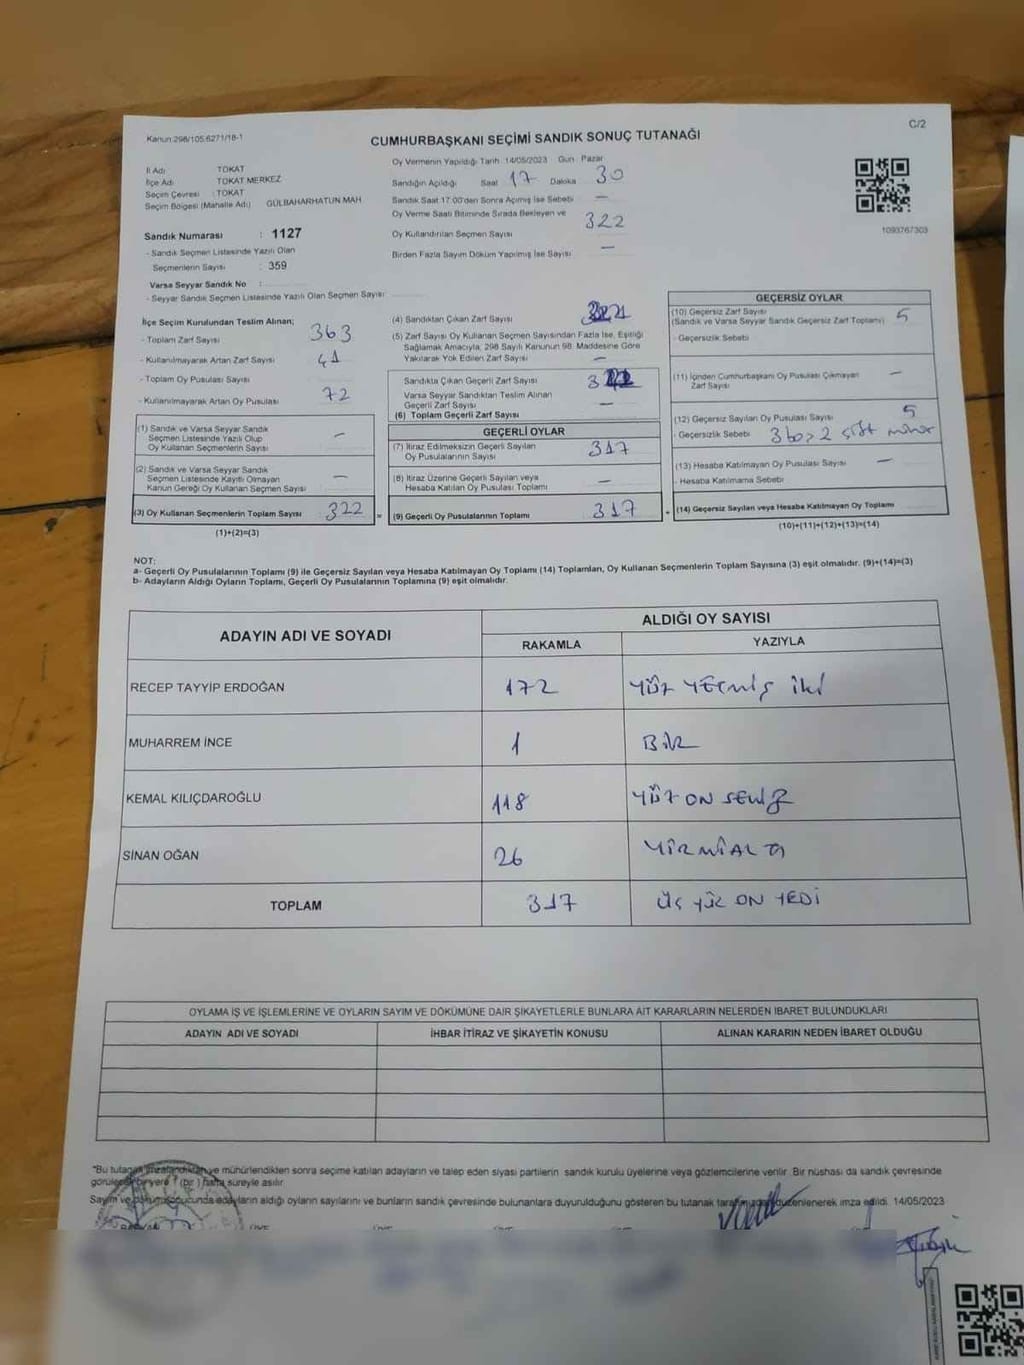 Kanun:298/105,6271/18-1
C/2
CUMHURBAŞKANI SEÇİMİ SANDIK SONUÇ TUTANAĞI
İl Adı : TOKAT
İlçe Adı : TOKAT MERKEZ
Seçim Çevresi : TOKAT
Seçim Bölgesi (Mahalle Adı) GÜLBAHARHATUN MAH
Sandık Numarası : 1127
- Sandık Seçmen Listesinde Yazılı Olan
Seçmenlerin Sayısı : 359
Varsa Seyyar Sandık No :
- Seyyar Sandık Seçmen Listesinde Yazılı Olan Seçmen Sayısı
Oy Vermenin Yapıldığı Tarih 14/05/2023 Gün Pazar
Sandığın Açıldığı Saat 17 Dakika 30
Sandık Saat 17.00'den Sonra Açımış İse Sebebi —
Oy Verme Saati Bitiminde Sırada Bekleyen ve
Oy Kullandırılan Seçmen Sayısı 322
Birden Fazla Sayım Döküm Yapılmış İse Sayısı —
1093767303
İlçe Seçim Kurulundan Teslim Alınan;
- Toplam Zarf Sayısı 363
- Kullanılmayarak Artan Zarf Sayısı 41
- Toplam Oy Pusulası Sayısı
- Kullanılmayarak Artan Oy Pusulası 72
(1) Sandık ve Varsa Seyyar Sandık
Seçmen Listesinde Yazılı Olup
Oy Kullanan Seçmenlerin Sayısı —
(2) Sandık ve Varsa Seyyar Sandık
Seçmen Listesinde Kayıtlı Olmayan
Kanun Gereği Oy Kullanan Seçmen Sayısı —
(3) Oy Kullanan Seçmenlerin Toplam Sayısı 322 =
(1)+(2)=(3)
(4) Sandıktan Çıkan Zarf Sayısı
(5) Zarf Sayısı Oy Kullanan Seçmen Sayısından Fazla İse, Eşitliği
Sağlamak Amacıyla, 298 Sayılı Kanunun 98. Maddesine Göre
Yakılarak Yok Edilen Zarf Sayısı —
Sandıkta Çıkan Geçerli Zarf Sayısı
Varsa Seyyar Sandıktan Teslim Alınan
Geçerli Zarf Sayısı —
(6) Toplam Geçerli Zarf Sayısı
GEÇERLİ OYLAR
(7) İtiraz Edilmeksizin Geçerli Sayılan
Oy Pusulalarının Sayısı 317
(8) İtiraz Üzerine Geçerli Sayılan veya
Hesaba Katılan Oy Pusulası Toplamı —
(9) Geçerli Oy Pusulalarının Toplamı 317 +
GEÇERSİZ OYLAR
(10) Geçersiz Zarf Sayısı
(Sandık ve Varsa Seyyar Sandık Geçersiz Zarf Toplamı) 5
- Geçersizlik Sebebi
(11) İçinden Cumhurbaşkanı Oy Pusulası Çıkmayan
Zarf Sayısı —
(12) Geçersiz Sayılan Oy Pusulası Sayısı 5
- Geçersizlik Sebebi 3 boş 2 çift mühür
(13) Hesaba Katılmayan Oy Pusulası Sayısı —
- Hesaba Katılmama Sebebi
(14) Geçersiz Sayılan veya Hesaba Katılmayan Oy Toplamı
(10)+(11)+(12)+(13)=(14)
NOT:
a- Geçerli Oy Pusulalarının Toplamı (9) ile Geçersiz Sayılan veya Hesaba Katılmayan Oy Toplamı (14) Toplamları, Oy Kullanan Seçmenlerin Toplam Sayısına (3) eşit olmalıdır. (9)+(14)=(3)
b- Adayların Aldığı Oyların Toplamı, Geçerli Oy Pusulalarının Toplamına (9) eşit olmalıdır.
ADAYIN ADI VE SOYADI
ALDIĞI OY SAYISI
RAKAMLA YAZIYLA
RECEP TAYYİP ERDOĞAN 172 YÜZ YETMİŞ İKİ
MUHARREM İNCE 1 BİR
KEMAL KILIÇDAROĞLU 118 YÜZ ON SEKİZ
SİNAN OĞAN 26 YİRMİALTI
TOPLAM 317 ÜÇ YÜZ ON YEDİ
OYLAMA İŞ VE İŞLEMLERİNE VE OYLARIN SAYIM VE DÖKÜMÜNE DAİR ŞİKAYETLERLE BUNLARA AİT KARARLARIN NELERDEN İBARET BULUNDUKLARI
ADAYIN ADI VE SOYADI İHBAR İTİRAZ VE ŞİKAYETİN KONUSU ALINAN KARARIN NEDEN İBARET OLDUĞU
"Bu tutanak imzalandıktan ve mühürlendikten sonra seçime katılan adayların ve talep eden siyasi partilerin sandık kurulu üyelerine veya gözlemcilerine verilir. Bir nüshası da sandık çevresinde
görülecek bir yere 1 (bir) hafta süreyle asılır.
Sayım ve dökümü sonucunda adayların aldığı oyların sayılarını ve bunların sandık çevresinde bulunanlara duyurulduğunu gösteren bu tutanak tarafımızdan düzenlenerek imza edildi. 14/05/2023